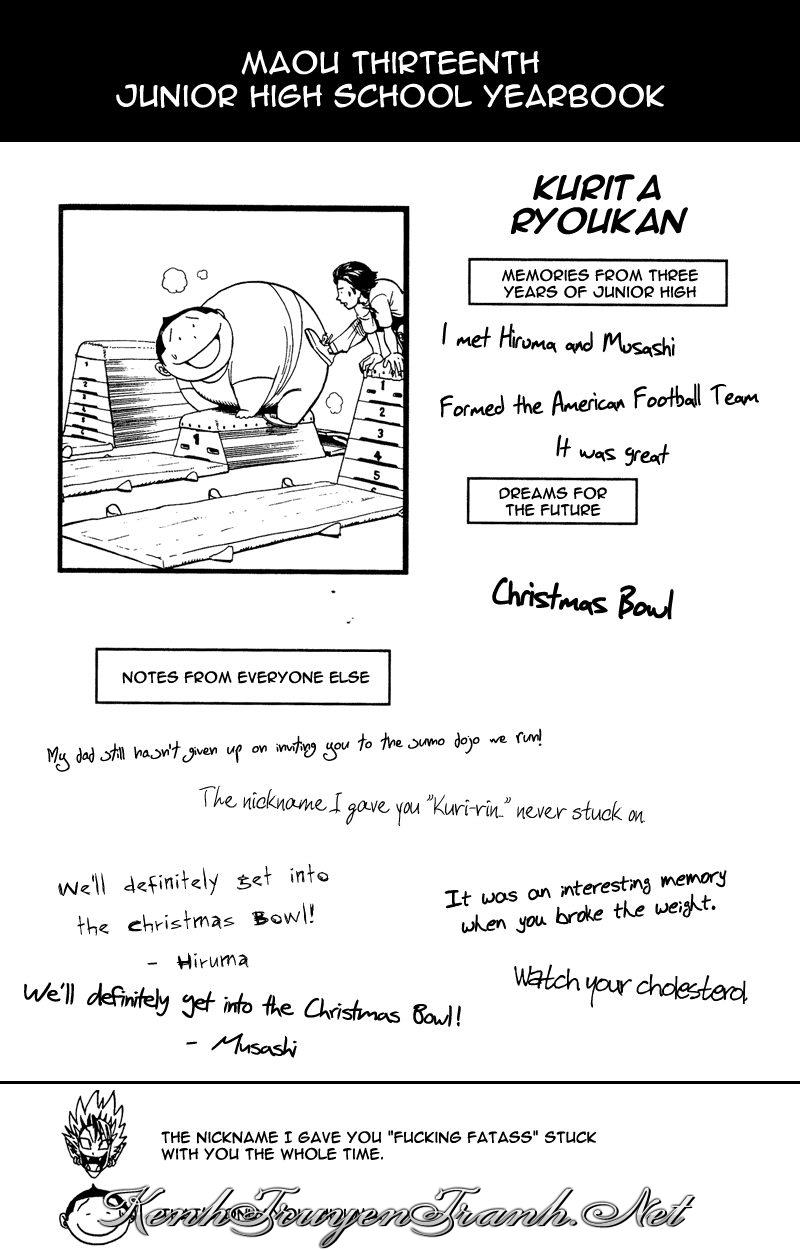 MAOU THIRTEENTH
JUNIOR HIGH SCHOOL YEARBOOK
KURITA
RYOUKAN
MEMORIES FROM THREE
YEARS OF JUNIOR HIGH
I met Hiruma and Musashi
Formed the American Football Team
It was great
DREAMS FOR
THE FUTURE
Christmas Bowl
1
2
3
4
5
1
1
2
3
4
5
NOTES FROM EVERYONE ELSE
My dad still hasn't given up on inviting you to the sumo dojo we run!
The nickname I gave you "Kuri-rin.." never stuck on
We'll definitely get into
the christmas Bowl!
- Hiruma
It was an interesting memory
when you broke the weight.
Watch your cholesterol
We'll definitely get into the Christmas Bowl!
- Musashi
THE NICKNAME I GAVE YOU "FUCKING FATASS" STUCK
WITH YOU THE WHOLE TIME.
KenhTruyenTranh.Net